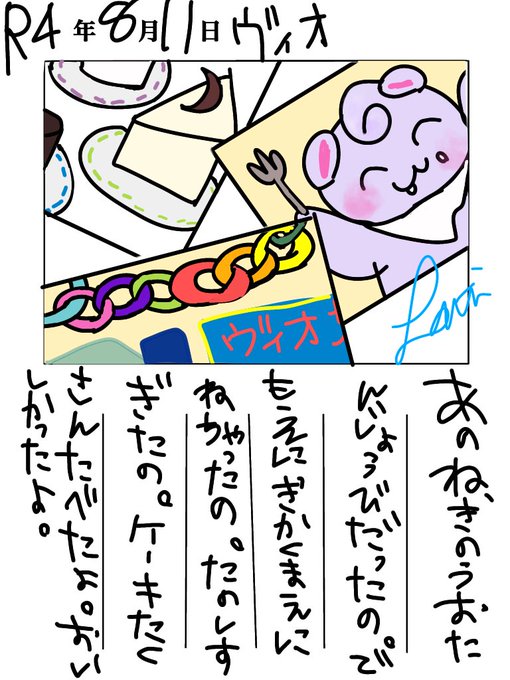 R4年8月11日 ヴィオ
ヴィオ
Lavi
あのね、きのうおた
んじょうびだったの。で
もうえにぎかくまえに
ねちゃったの。たのしす
ぎたの。ケーキたく
さんたべたよ。おい
しかったよ。